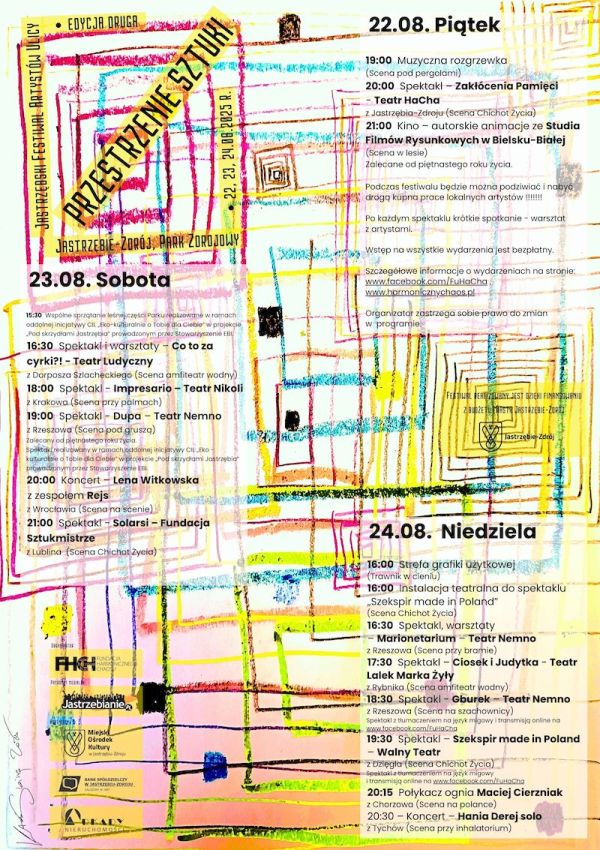 • EDYCJA DRUGA
JASTRZĘBSKI FESTIWAL ARTYSTÓW ULICY
PRZESTRZENIE SZTUKI
• 22, 23, 24.08.2025 R.
JASTRZĘBIE-ZDRÓJ, PARK ZDROJOWY
22.08. Piątek
19:00 Muzyczna rozgrzewka
(Scena pod pergolami)
20:00 Spektakl – Zakłócenia Pamięci
- Teatr HaCha
z Jastrzębia-Zdroju (Scena Chichot Życia)
21:00 Kino – autorskie animacje ze Studia
Filmów Rysunkowych w Bielsku-Białej
(Scena w lesie)
Zalecane od piętnastego roku życia.
Podczas festiwalu będzie można podziwiać i nabyć
drogą kupna prace lokalnych artystów !!!!!!!
Po każdym spektaklu krótkie spotkanie - warsztat
z artystami.
Wstęp na wszystkie wydarzenia jest bezpłatny.
Szczegółowe informacje o wydarzeniach na stronie:
www.facebook.com/FuHaCha ,
www.harmonicznychaos.pl
Organizator zastrzega sobie prawo do zmian
w programie.
23.08. Sobota
15:30 Wspólne sprzątanie leśnej części Parku realizowane w ramach
oddolnej inicjatywy CIL „Eko-kulturalnie o Tobie dla Ciebie" w projekcie
„Pod skrzydłami Jastrzębia" prowadzonym przez Stowarzyszenie EBI.
16:30 Spektakl i warsztaty – Co to za
cyrki?! - Teatr Ludyczny
z Darposza Szlacheckiego (Scena amfiteatr wodny)
18:00 Spektakl - Impresario – Teatr Nikoli
z Krakowa (Scena przy palmach)
19:00 Spektakl - Dupa – Teatr Nemno
z Rzeszowa (Scena pod gruszą)
Zalecany od piętnastego roku życia.
Spektakl realizowany w ramach oddolnej inicjatywy CIL „Eko-
kulturalnie o Tobie dla Ciebie" w projekcie „Pod skrzydłami Jastrzębia"
prowadzonym przez Stowarzyszenie EBI.
20:00 Koncert – Lena Witkowska
z zespołem Rejs
z Wrocławia (Scena na scenie)
21:00 Spektakl - Solarsi – Fundacja
Sztukmistrze
z Lublina (Scena Chichot Życia)
FESTIWAL REALIZOWANY JEST DZIĘKI FINANSOWANIU
Z BUDŻETU MIASTA JASTRZĘBIE-ZDRÓJ
Jastrzębie-Zdrój
24.08. Niedziela
16:00 Strefa grafiki użytkowej
(Trawnik w cieniu)
16:00 Instalacja teatralna do spektaklu
„Szekspir made in Poland"
(Scena Chichot Życia)
16:30 Spektakl, warsztaty
– Marionetarium – Teatr Nemno
z Rzeszowa (Scena przy bramie)
17:30 Spektakl – Ciosek i Judytka - Teatr
Lalek Marka Żyły
z Rybnika (Scena amfiteatr wodny)
18:30 Spektakl – Gburek – Teatr Nemno
z Rzeszowa (Scena na szachownicy)
Spektakl z tłumaczeniem na język migowy i transmisją online na
www.facebook.com/FuHaCha
19:30 Spektakl – Szekspir made in Poland
– Walny Teatr
z Dzięgla (Scena Chichot Życia)
Spektakl z tłumaczeniem na język migowy
i transmisją online na www.facebook.com/FuHaCha
20:15 Połykacz ognia Maciej Cierzniak
z Chorzowa (Scena na polance)
20:30 – Koncert – Hania Derej solo
z Tychów (Scena przy inhalatorium)
FHCH FUNDACJA
HARMONICZNEGO
CHAOSU
Jastrzębianie
Miejski
Ośrodek
Kultury
w Jastrzębiu-Zdroju
BANK SPÓŁDZIELCZY
W JASTRZĘBIU-ZDROJU
ARKADY
NIERUCHOMOŚCI